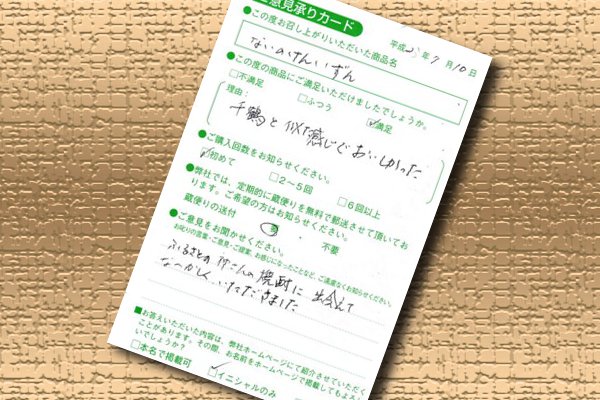 ご意見承りカード
平成23年7月10日
●この度お召し上がりいただいた商品名
ないのけんいずん
●この度の商品にご満足いただけましたでしょうか。
□不満足 □ふつう ☑満足
理由：
千鶴と似た感じでおいしかった
●ご購入回数をお知らせください。
☑初めて □2～5回 □6回以上
●弊社では、定期的に蔵便りを無料で郵送させて頂いてお
ります。ご希望の方はお知らせください。
蔵便りの送付 不要
●ご意見をお聞かせください。
お叱りの言葉・ご意見・ご提案、お感じになったことなど、ご遠慮なくお知らせください。
ふるさとの 焼酎に 出会えて
なつかしく、いただきました
■お答えいただいた内容は、弊社ホームページにて紹介させていただく
ことがあります。その際、お名前をホームページで掲載してもよろし
いでしょうか？
□本名で掲載可 ☑イニシャルのみ